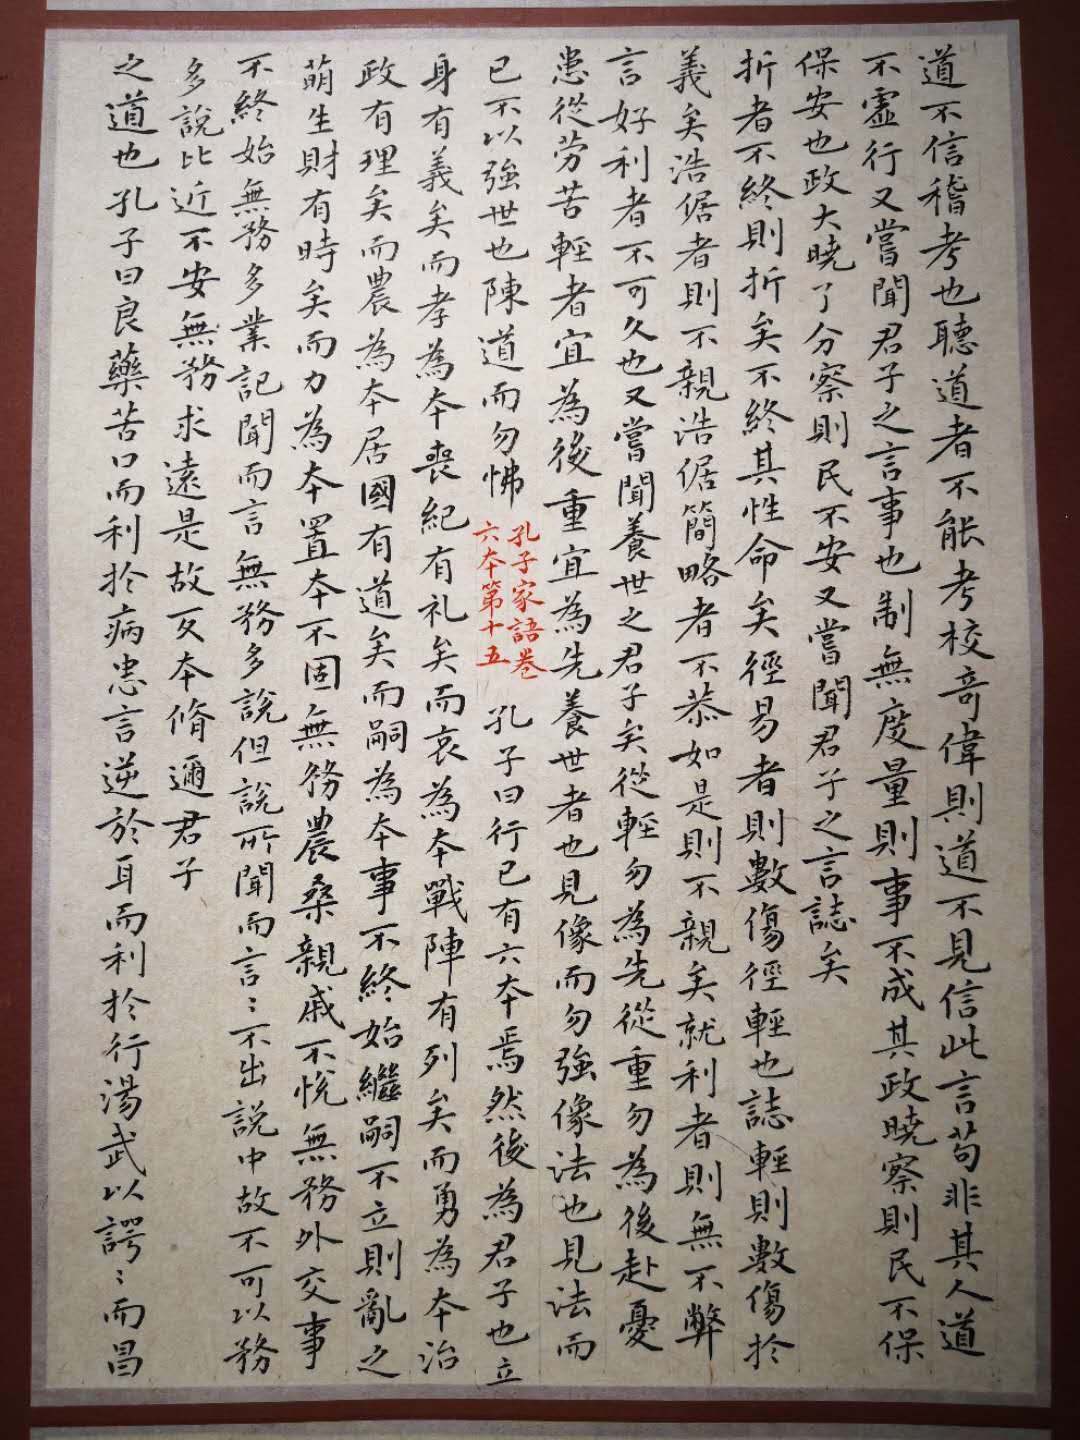 道不信稽考也聽道者不能考校竒偉則道不見信此言苟非其人道
不虛行又嘗聞君子之言事也制無度量則事不成其政曉察則民不保
保安也政大曉了分察則民不安又嘗聞君子之言誌矣
折者不終則折矣不終其性命矣徑易者則數傷徑輕也誌輕則數傷於
義矣浩倨者則不親浩倨簡略者不恭如是則不親矣就利者則無不弊
言好利者不可久也又嘗聞養世之君子矣從輕勿為先從重勿為後赴憂
患從勞苦輕者宜為後重宜為先養世者也見像而勿強像法也見法而
已不以強世也陳道而勿怫
孔子家語卷
六本第十五
孔子曰行已有六本焉然後為君子也立
身有義矣而孝為本喪紀有礼矣而哀為本戰陣有列矣而勇為本治
政有理矣而農為本居國有道矣而嗣為本事不終始繼嗣不立則亂之
萌生財有時矣而力為本置本不固無務農桑親戚不悅無務外交事
不終始無務多業記聞而言無務多說但說所聞而言〻不出說中故不可以務
多說比近不安無務求遠是故反本脩邇君子
之道也孔子曰良藥苦口而利於病忠言逆於耳而利於行湯武以諤〻而昌